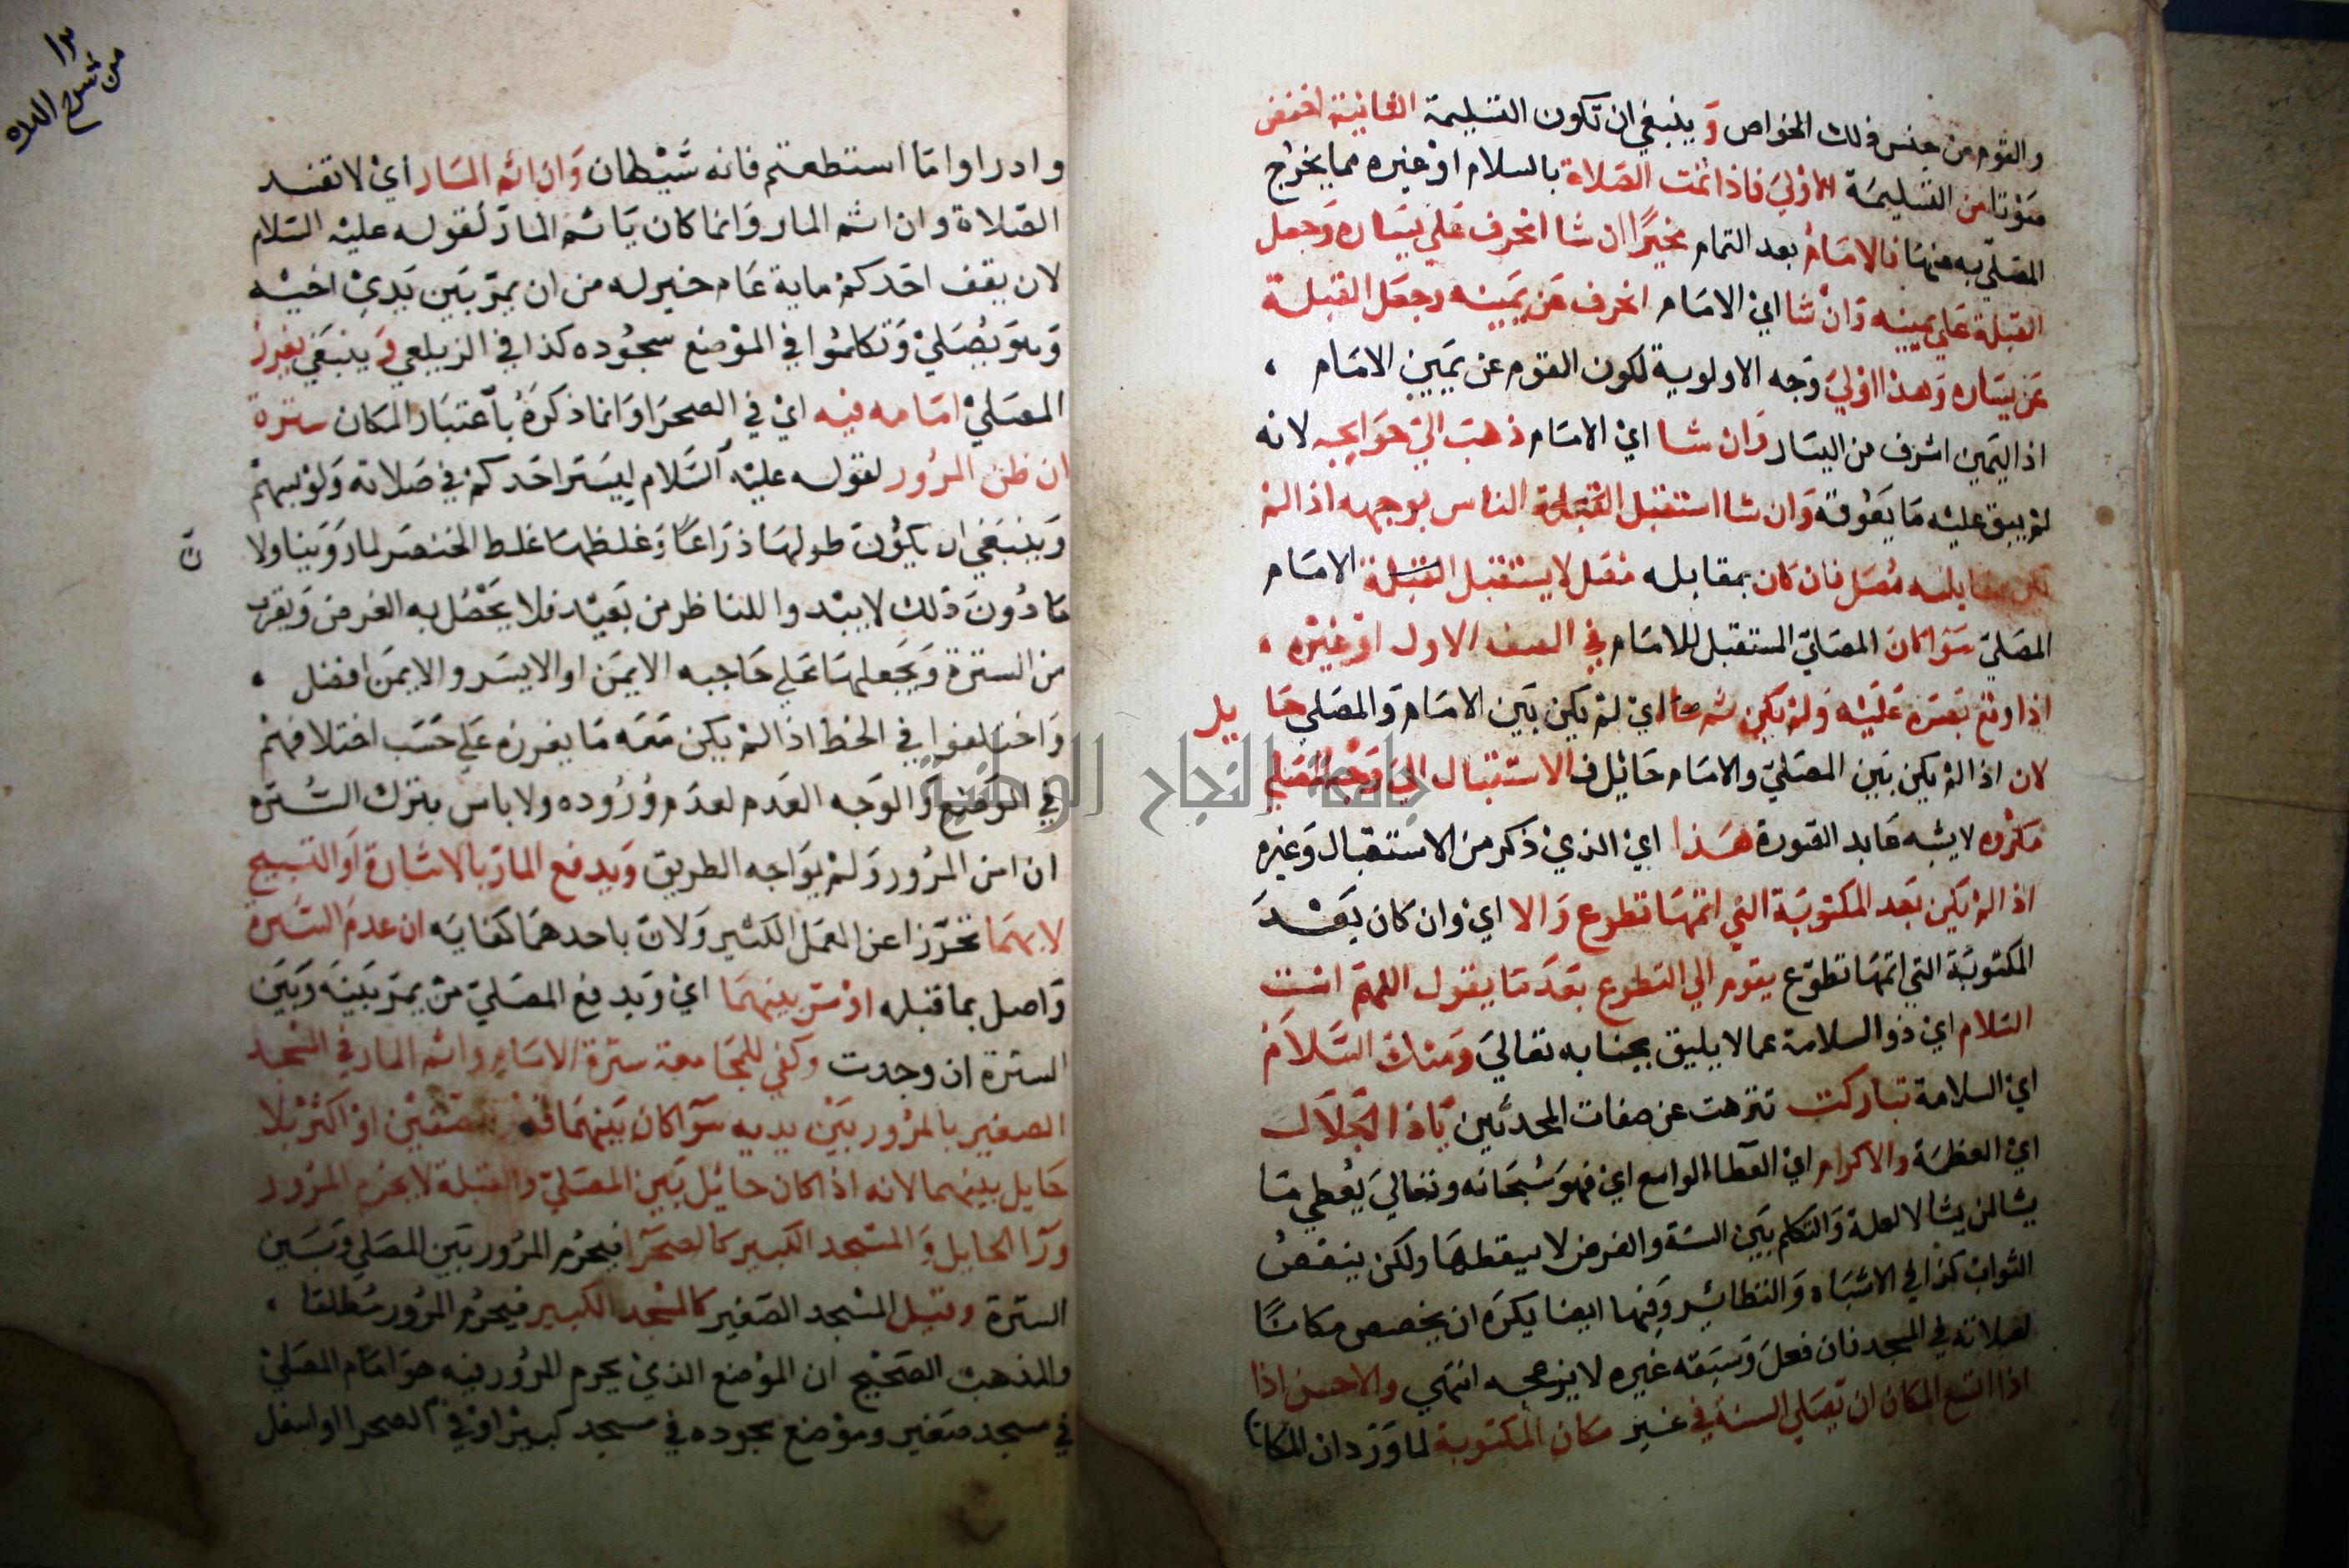 والقوم من جنس ذلك الخواص وينبغي ان تكون التسليمة الثانية اخفض
صوتا من التسليمة الاولى فاذا تمت الصلاة بالسلام او غيره مما يخرج
المصلي به منها فالامام بعد التمام مخيرا ان شا انحرف على يساره وجعل
القبلة على يمينه وان شا اي الامام انحرف عن يمينه وجعل القبلة
عن يساره وهذا اولى وجه الاولوية لكون القوم عن يمين الامام
اذ اليمين اشرف من اليسار وان شا اي الامام ذهب الى حوايجه لانه
لم يبق عليه ما يعوقه وان شا استقبل القبلة الناس بوجهه اذا لم
يكن بمقابله مصل فان كان بمقابله مصل لا يستقبل القبلة الامام
المصلي سوا كان المصلي المستقبل للامام في الصف الاول او غيره
اذا وقع بصره عليه ولم يكن ثم حا اي لم يكن بين الامام والمصلي حا يل
لان اذا لم يكن بين المصلي والامام حائل ف الاستقبال الى وجه المصلي
مكروه لا يشبه عابد الصورة هذا اي الذي ذكر من الاستقبال وغيره
اذا لم يكن بعد المكتوبة التي اتمها تطوع والا اي وان كان بعد
المكتوبة التي اتمها تطوع يقوم الي التطوع بعد ما يقول اللهم انت
السلام اي ذو السلامة عما لا يليق بجنابه تعالى ومنك السلام
اي السلامة تباركت تنزهت عن صفات المحدثين ياذا الجلال
اي العظمة والاكرام اي العطاء الواسع اي فهو سبحانه وتعالى يعطي ما
يشا لمن يشا لا لعلة والتكلم بين السنة والفرض لا يسقطها ولكن ينقص
الثواب كذا في الاشباه والنظائر وفيها ايضا يكره ان يخصص مكانا
لصلاته في المسجد فان فعل وسبقه غيره لا يزعجه انتهي والاحسن اذا
اذا اتسع المكان ان يصلي السنة في غير مكان المكتوبة لما ورد ان المكان
من شرح
وادراوا ما استطعتم فانه شيطان وان اثم المار اي لا تفسد
الصلاة وان اثم المار وانما كان ياثم المار لقوله عليه السلام
لان يقف احدكم ماية عام خير له من ان يمر بين يدي اخيه
وهو يصلي وتكلموا في الموضع سجوده كذا في الزيلعي وينبغي يغرز
المصلي امامه فيه اي في الصحرا وانما ذكره باعتبار المكان سترة
ان ظن المرور لقوله عليه السلام ليستر احدكم في صلاته ولو بسهم
وينبغي ان يكون طولها ذراعا وغلظها غلظ الخنصر لما روينا ولا
ن
ما دون ذلك لا يبدوا للناظر من بعيد فلا يحصل به الغرض ويقرب
من السترة ويجعلها على حاجبه الايمن او الايسر والايمن افضل
واختلفوا في الخط اذا لم يكن معه ما يغرزه على حسب اختلافهم
في الوضع والوجه العدم لعدم وروده ولا باس بترك السترة
ان امن المرور ولم يواجه الطريق ويدفع المار بالاشارة او التسبيح
لا بهما تحرزا عن العمل الكثير ولان باحدهما كفايه ان عدم السترة
واصل بما قبله او مر بينهما اي ويدفع المصلي من يمر بينه وبين
السترة ان وجدت وكفي للجماعة سترة الامام واثم المار في المسجد
الصغير بالمرور بين يديه سوا كان بينهما قدر الصفين او اكثر بلا
حايل بينهما لانه اذا كان حائل بين المصلي والقبلة لا يحرم المرور
ورا الحايل والمسجد الكبير كالصحرا فيحرم المرور بين المصلي وبين
السترة وقيل المسجد الصغير كالمسجد الكبير فيحرم المرور مطلقا
والمذهب الصحيح ان الموضع الذي يحرم المرور فيه هو امام المصلي
في مسجد صغير وموضع سجوده في مسجد كبير او في الصحرا او اسفل
جامعة النجاح الوطنية